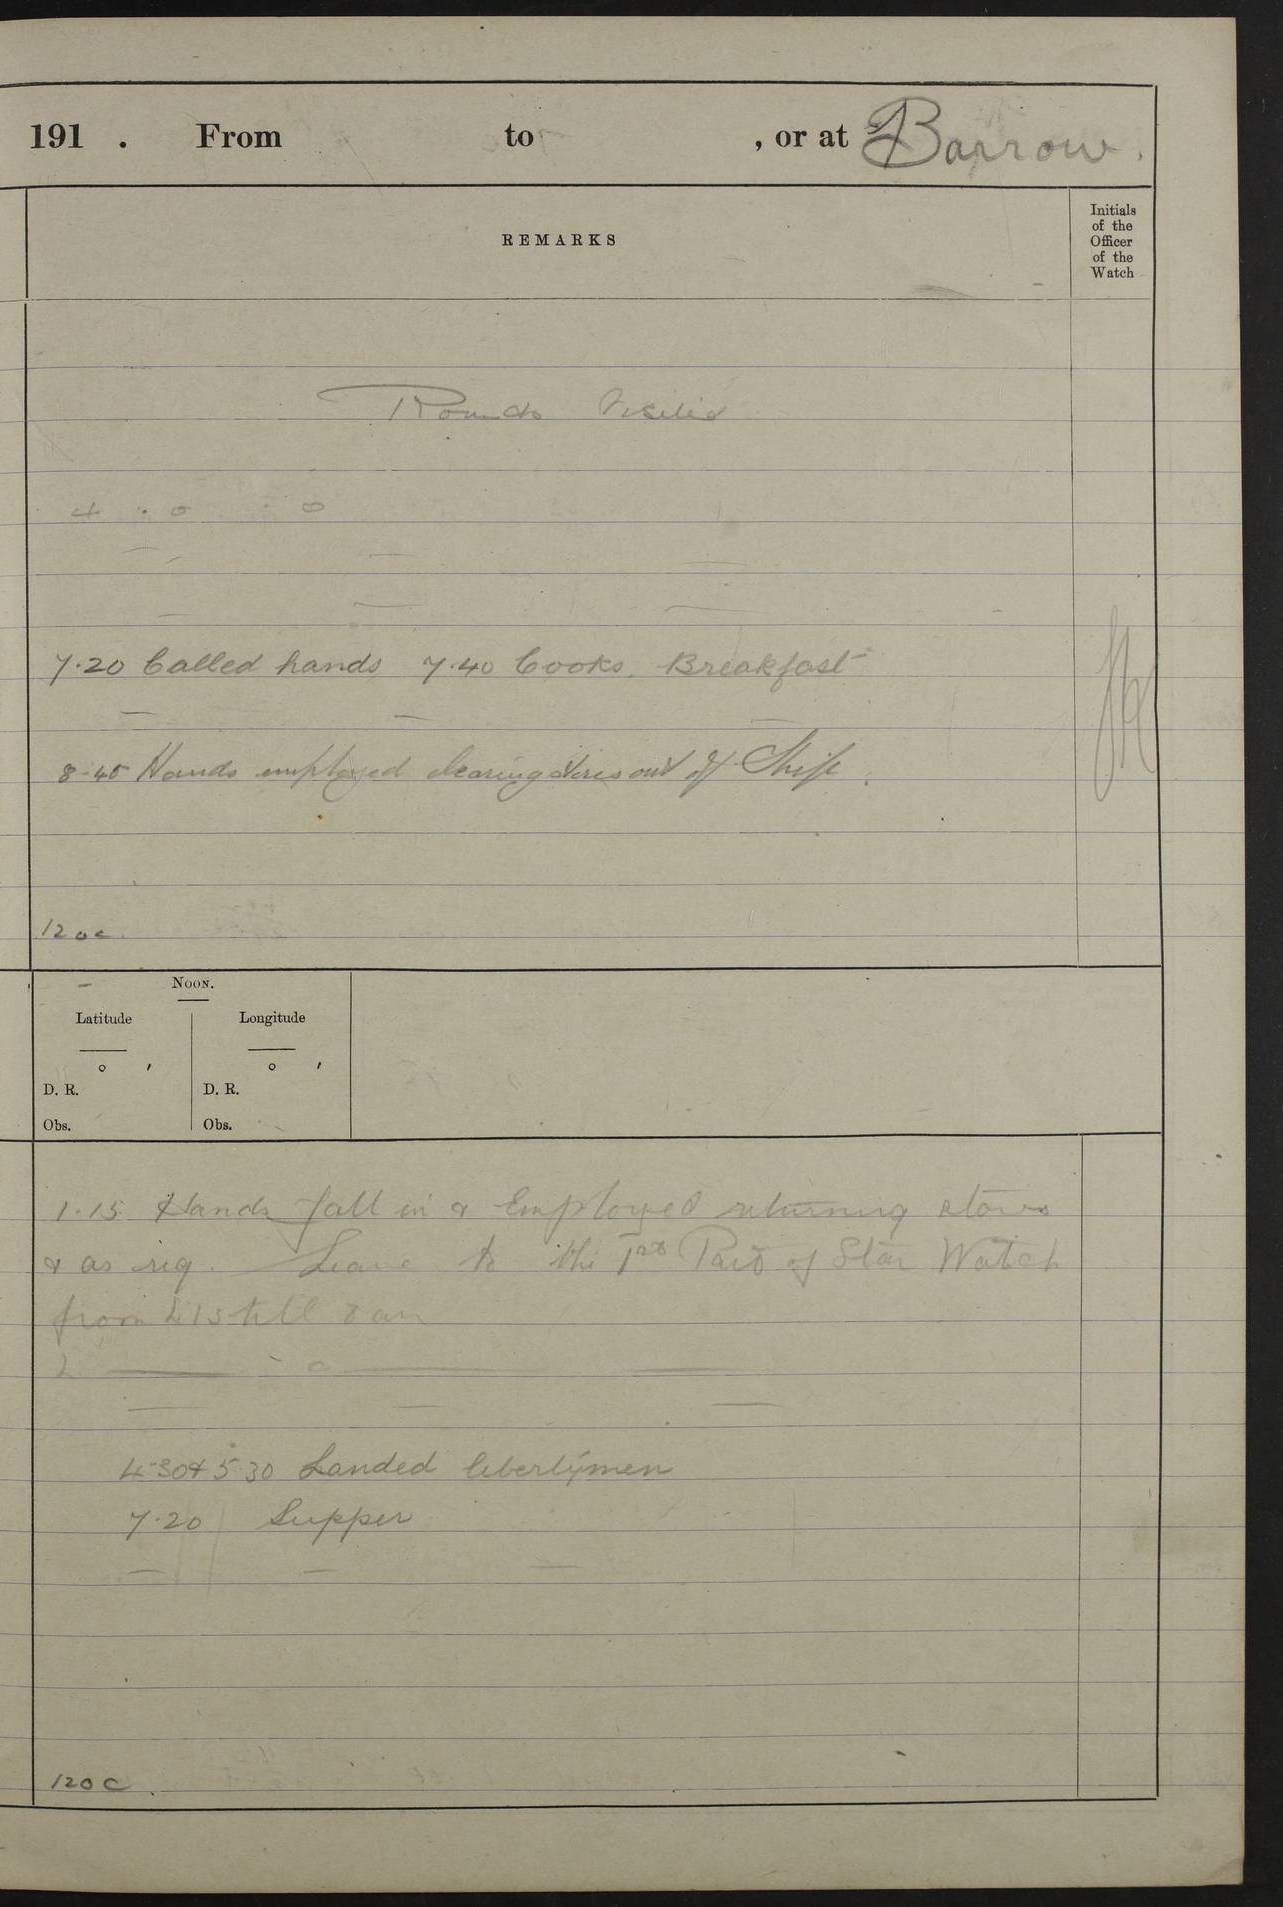 191 . From to , or at Barrow.
REMARKS
Initials
of the
Officer
of the
Watch
Rounds Visited
4 . 0 . 0
7.20 Called hands 7.40 Cooks. Breakfast
8-45 Hands employed clearing stores out of Ship.
12 oc.
NOON.
Latitude Longitude
° ′ ° ′
D. R. D. R.
Obs. Obs.
1.15 Hands fall in & Employed returning stores
& as req. Leave to the 1st Part of Star Watch
from 4 15 till 8 am
4-30 & 5 30 Landed libertymen
7.20 Supper
12 o C.